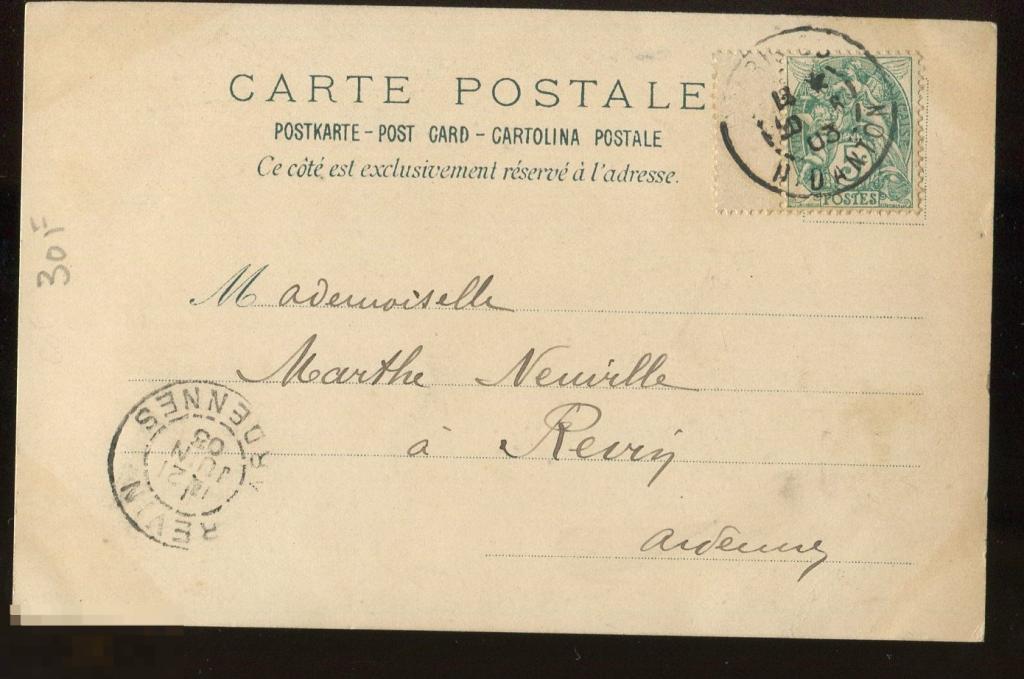 CARTE POSTALE
POSTKARTE - POST CARD - CARTOLINA POSTALE
Ce côté est exclusivement réservé à l'adresse.
03
R. DANTON
POSTES
30F
Mademoiselle
Marthe Neuville
à Revin
Ardennes
REVIN
21
JUIN
03
ARDENNES